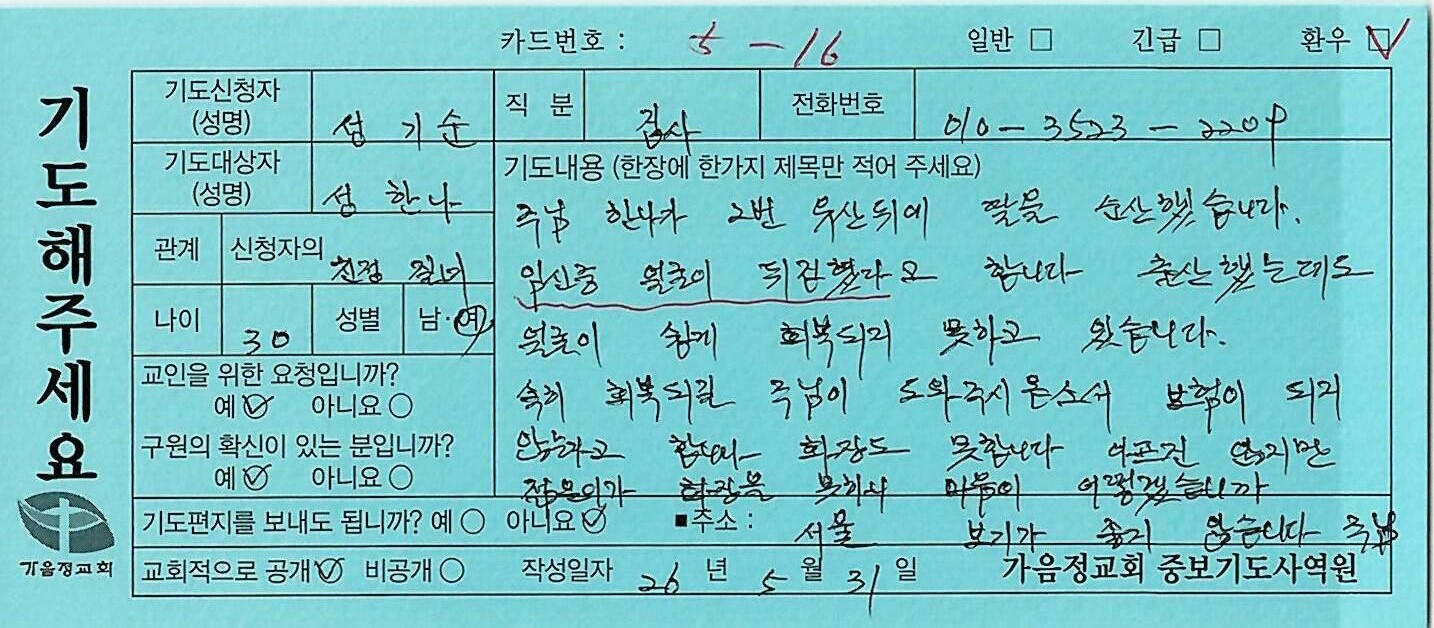 카드번호 : 5 - 16 일반 □ 긴급 □ 환우 ☑
기도해주세요
기도신청자 (성명) 성 기 순 직 분 집사 전화번호 010 - 3523 - 2209
기도대상자 (성명) 성 한 나
기도내용 (한장에 한가지 제목만 적어 주세요)
주님 한나가 2번 유산뒤에 딸을 순산했습니다.
관계 신청자의 친정 질녀
임신중 얼굴이 뒤집혔다고 합니다 출산했는데도
나이 30 성별 남·여
얼굴이 쉽게 회복되지 못하고 있습니다.
교인을 위한 요청입니까?
예 ☑ 아니요 ○
속히 회복되길 주님이 도와주시옵소서 보험이 되지
구원의 확신이 있는 분입니까?
예 ☑ 아니요 ○
않는다고 합니다 화장도 못합니다 아프진 않지만
젊은이가 화장을 못하니 마음이 어떻겠습니까
기도편지를 보내도 됩니까? 예 ○ 아니요 ☑ ■주소 : 서울 보기가 좋지 않습니다 주님
교회적으로 공개 ☑ 비공개 ○ 작성일자 26 년 5 월 31 일 가음정교회 중보기도사역원
가음정교회